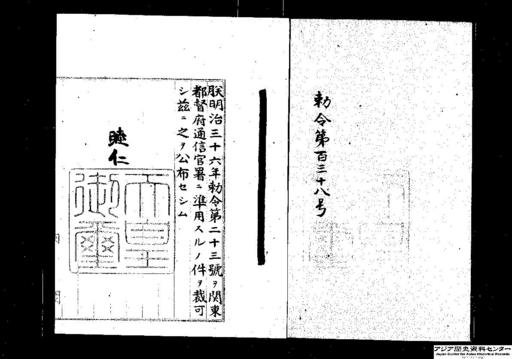 勅令第百三十八号
朕明治三十六年勅令第二十三號ヲ関東
都督府通信官署ニ準用スルノ件ヲ裁可
シ茲ニ之ヲ公布セシム
睦仁
天皇
御璽
アジア歴史資料センター
Japan Center for Asian Historical Records